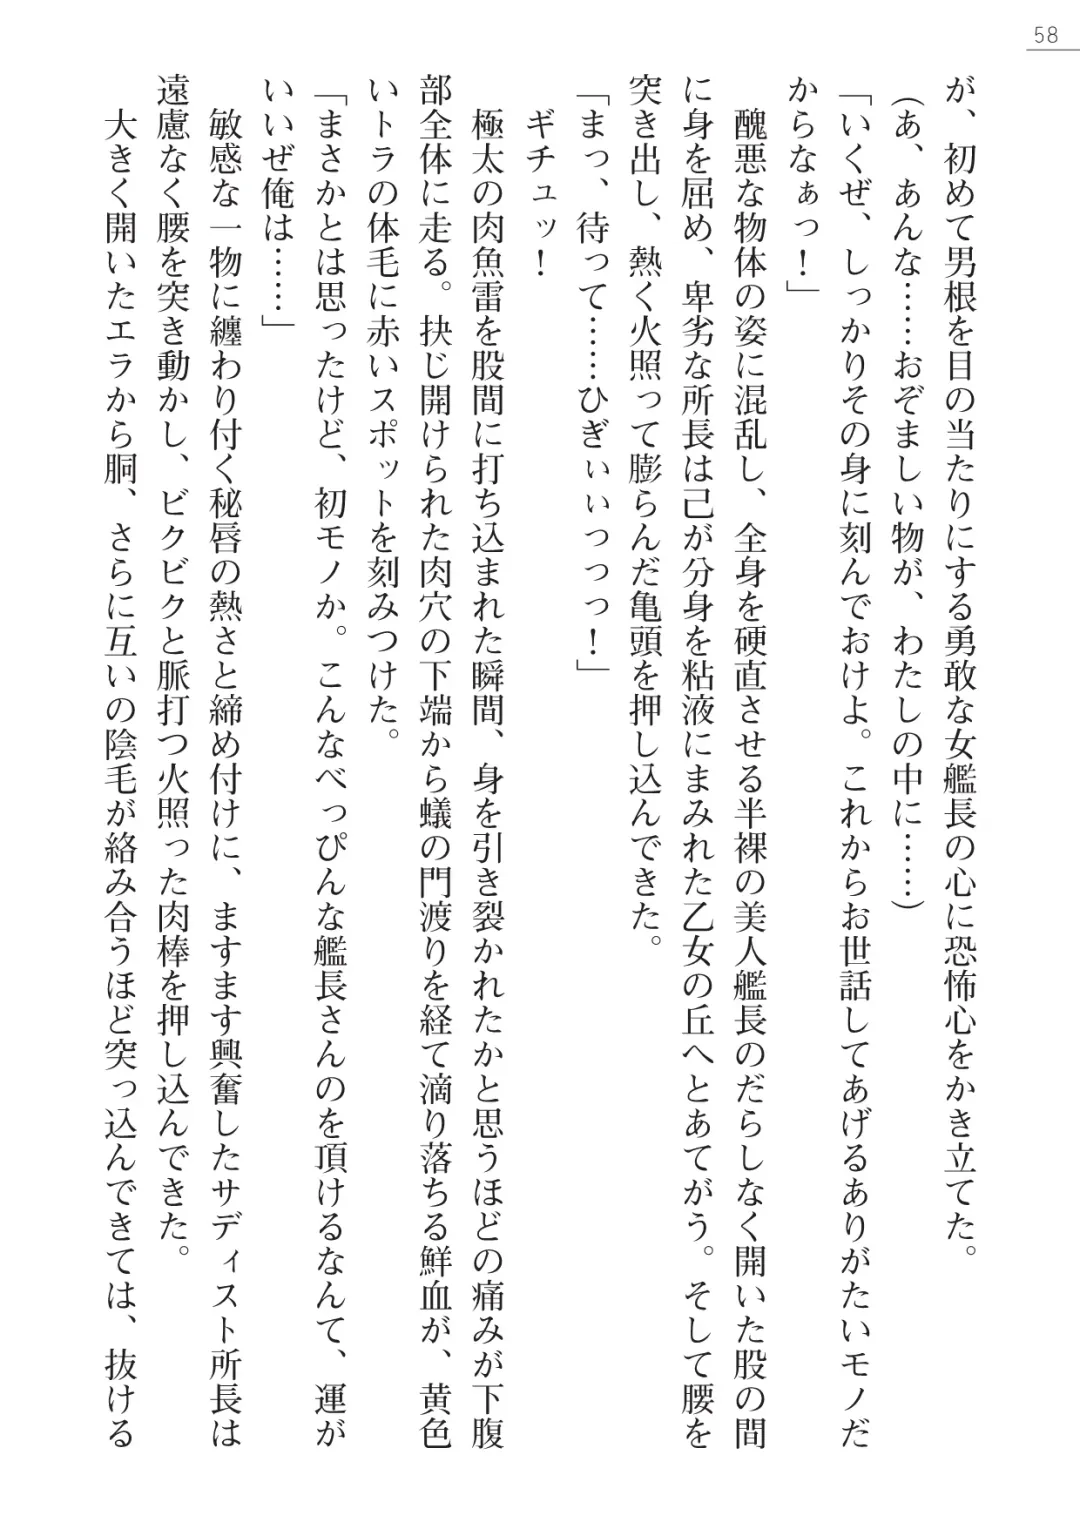 58
が、初めて男根を目の当たりにする勇敢な女艦長の心に恐怖心をかき立てた。
（あ、あんな……おぞましい物が、わたしの中に……）
「いくぜ、しっかりその身に刻んでおけよ。これからお世話してあげるありがたいモノだ
からなぁっ！」
醜悪な物体の姿に混乱し、全身を硬直させる半裸の美人艦長のだらしなく開いた股の間
に身を屈め、卑劣な所長は己が分身を粘液にまみれた乙女の丘へとあてがう。そして腰を
突き出し、熱く火照って膨らんだ亀頭を押し込んできた。
「まっ、待って……ひぎぃぃっっっ！」
ギチュッ！
極太の肉魚雷を股間に打ち込まれた瞬間、身を引き裂かれたかと思うほどの痛みが下腹
部全体に走る。抉じ開けられた肉穴の下端から蟻の門渡りを経て滴り落ちる鮮血が、黄色
いトラの体毛に赤いスポットを刻みつけた。
「まさかとは思ったけど、初モノか。こんなべっぴんな艦長さんのを頂けるなんて、運が
いいぜ俺は……」
敏感な一物に纏わり付く秘唇の熱さと締め付けに、ますます興奮したサディスト所長は
遠慮なく腰を突き動かし、ビクビクと脈打つ火照った肉棒を押し込んできた。
大きく開いたエラから胴、さらに互いの陰毛が絡み合うほど突っ込んできては、抜ける